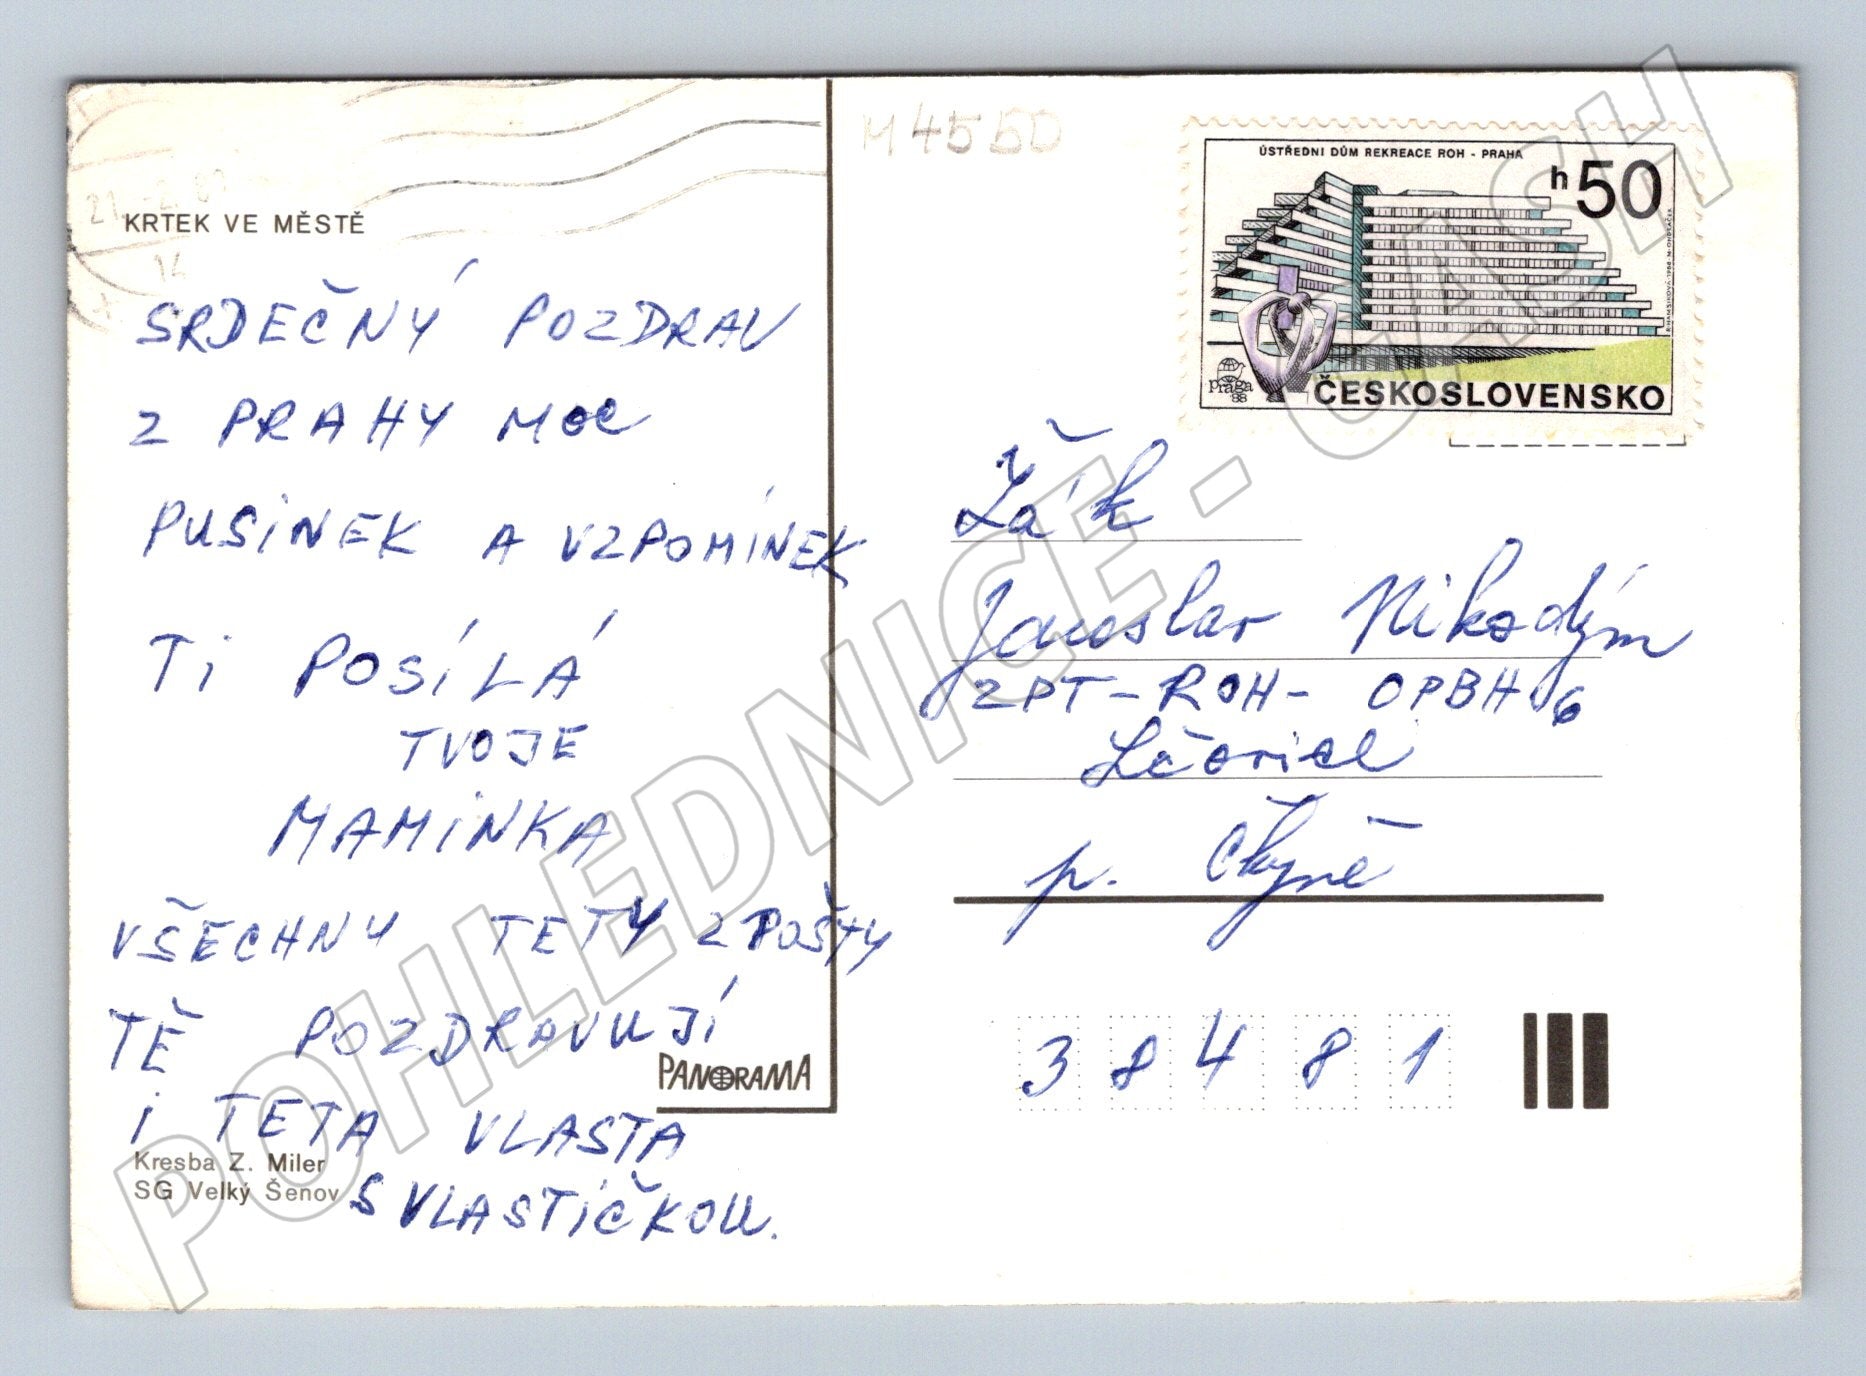 M 4550
ÚSTŘEDNÍ DŮM REKREACE ROH - PRAHA
h 50
praga
88
ČESKOSLOVENSKO
KRTEK VE MĚSTĚ
SRDEČNÝ POZDRAV
Z PRAHY MOC
PUSINEK A VZPOMÍNEK
Ti POSÍLÁ
TVOJE
MAMINKA
VŠECHNY TETY Z POŠTY
TĚ POZDRAVUJÍ
i TETA VLASTA
S VLASTIČKOU.
PANORAMA
Kresba Z. Miler
SG Velký Šenov
Žák
Jaroslav Nikodým
ZPT - ROH - OPBH 6
p. Čkyně
38481
POHLEDNICE - CASH